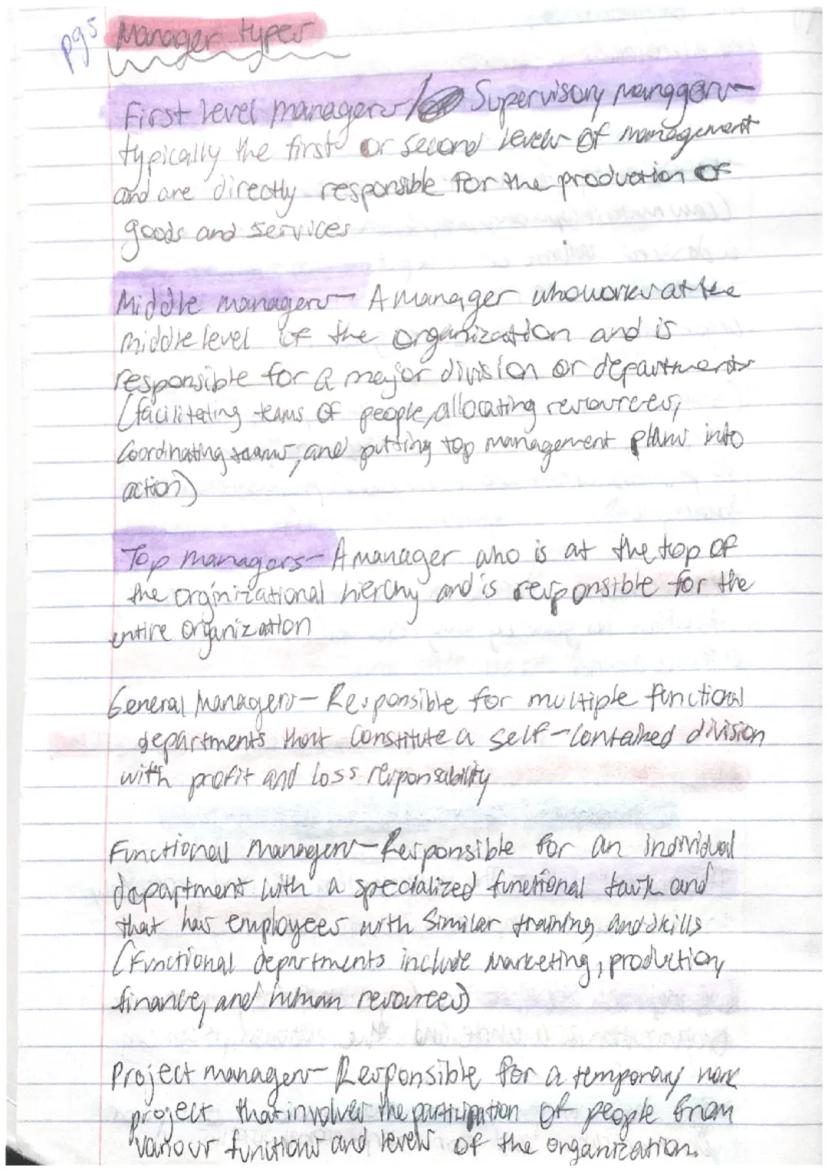 pg 5
Manager types
First level managers/ Supervisory managers-
typically the first or second levels of management
and are directly responsible for the production of
goods and services
Middle managers- A manager who works at the
middle level of the organization and is
responsible for a major division or departments
(facilitating teams of people, allocating resources,
Coordinating teams, and putting top management plans into
action)
Top managers- A manager who is at the top of
the orginizational hierchy and is responsible for the
entire organization
General managers- Responsible for multiple functional
departments that constitute a self-contained division
with profit and loss responsability
Functional managers- Responsible for an individual
department with a specialized functional task and
that has employees with similar training and skills
(Functional departments include marketing, production,
finance, and human resources)
Project managers- Responsible for a temporary work
project that involves the participation of people from
various funitions and levels of the organization.